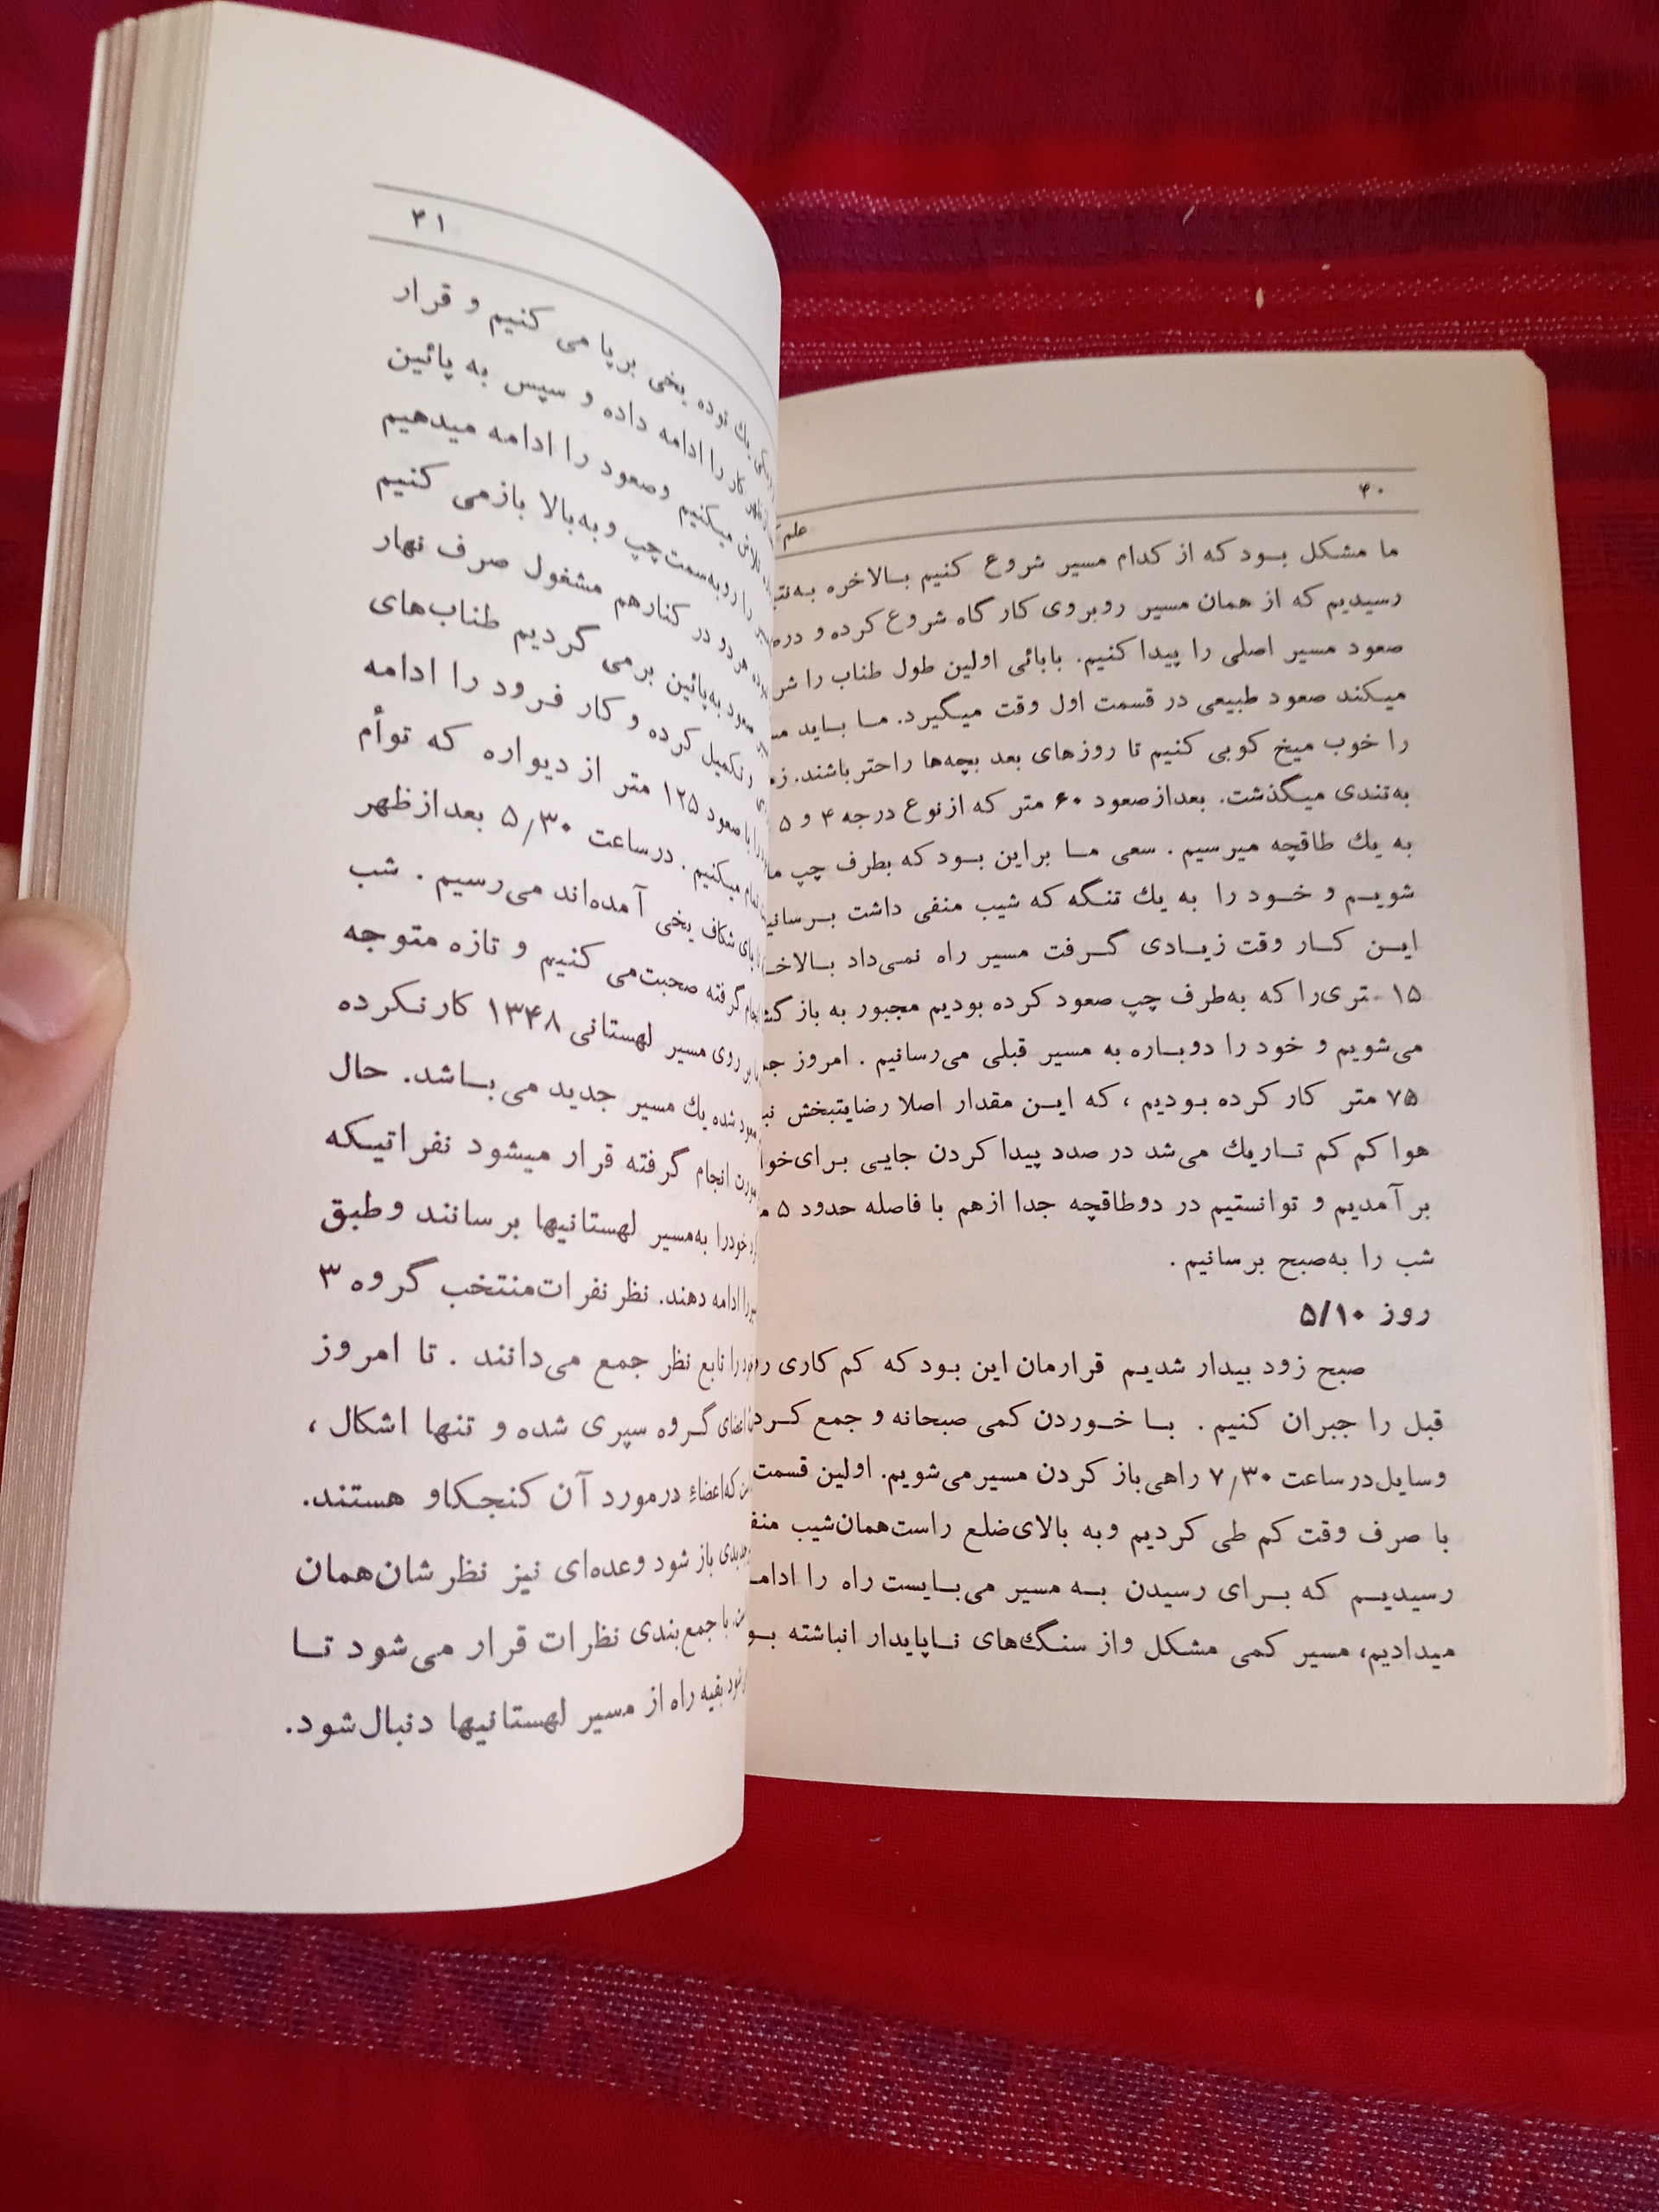 ۴۰
علم
ما مشکل بود که از کدام مسیر شروع کنیم بالاخره
رسیدیم که از همان مسیر روبروی کارگاه شروع کرده و
صعود مسیر اصلی را پیدا کنیم. بابائی اولین طول طناب را
میکند صعود طبیعی در قسمت اول وقت میگیرد. ما باید
را خوب میخ کوبی کنیم تا روزهای بعد بچه‌ها راحتر باشند.
به‌تندی میگذشت. بعداز صعود ۶۰ متر که از نوع درجه ۴ و ۵
به یك طاقچه میرسیم. سعی ما براین بود که بطرف چپ
شویم و خود را به یك تنگه که شیب منفی داشت
این کار وقت زیادی گرفت مسیر راه نمی‌داد
۱۵ متری‌را که به‌طرف چپ صعود کرده بودیم مجبور به باز
می‌شویم و خود را دوباره به مسیر قبلی می‌رسانیم. امروز
۷۵ متر کار کرده بودیم، که این مقدار اصلا رضایتبخش
هوا کم کم تاریك می‌شد در صدد پیدا کردن جایی برای
بر آمدیم و توانستیم در دوطاقچه جدا ازهم با فاصله حدود ۵
شب را به‌صبح برسانیم.
روز ۵/۱۰
صبح زود بیدار شدیم قرارمان این بود که کم کاری
قبل را جبران کنیم. با خوردن کمی صبحانه و جمع
وسایل‌در ساعت ۷٫۳۰ راهی‌باز کردن مسیر می‌شویم. اولین قسمت
با صرف وقت کم طی کردیم وبه بالای‌ضلع راست‌همان‌شیب
رسیدیم که برای رسیدن به مسیر می‌بایست راه را
میدادیم، مسیر کمی مشکل واز سنگ‌های ناپایدار انباشته
۴۱
یك توده یخی برپا می کنیم و قرار
کار را ادامه داده و سپس به پائین
تلاش میکنیم وصعود را ادامه میدهیم
را روبه‌سمت‌چپ وبه‌بالا بازمی کنیم
هردو در کنارهم مشغول صرف نهار
صعود به‌پائین برمی گردیم طناب‌های
تکمیل کرده و کار فرود را ادامه
را باصعود ۱۲۵ متر از دیواره که توأم
تمام میکنیم. درساعت ۵٫۳۰ بعدازظهر
پای شکاف یخی آمده‌اند می‌رسیم. شب
انجام گرفته صحبت‌می کنیم و تازه متوجه
بر روی مسیر لهستانی ۱۳۴۸ کارنکرده
شده یك مسیر جدید می‌باشد. حال
انجام گرفته قرار میشود نفراتیکه
خودرا به‌مسیر لهستانیها برسانند وطبق
را ادامه دهند. نظر نفرات‌منتخب گروه ۳
را تابع نظر جمع می‌دانند. تا امروز
اعضای گروه سپری شده و تنها اشکال،
که‌اعضاء درمورد آن کنجکاو هستند.
جدیدی باز شود وعده‌ای نیز نظرشان‌همان
با جمع‌بندی نظرات قرار می‌شود تا
بقیه راه از مسیر لهستانیها دنبال‌شود.